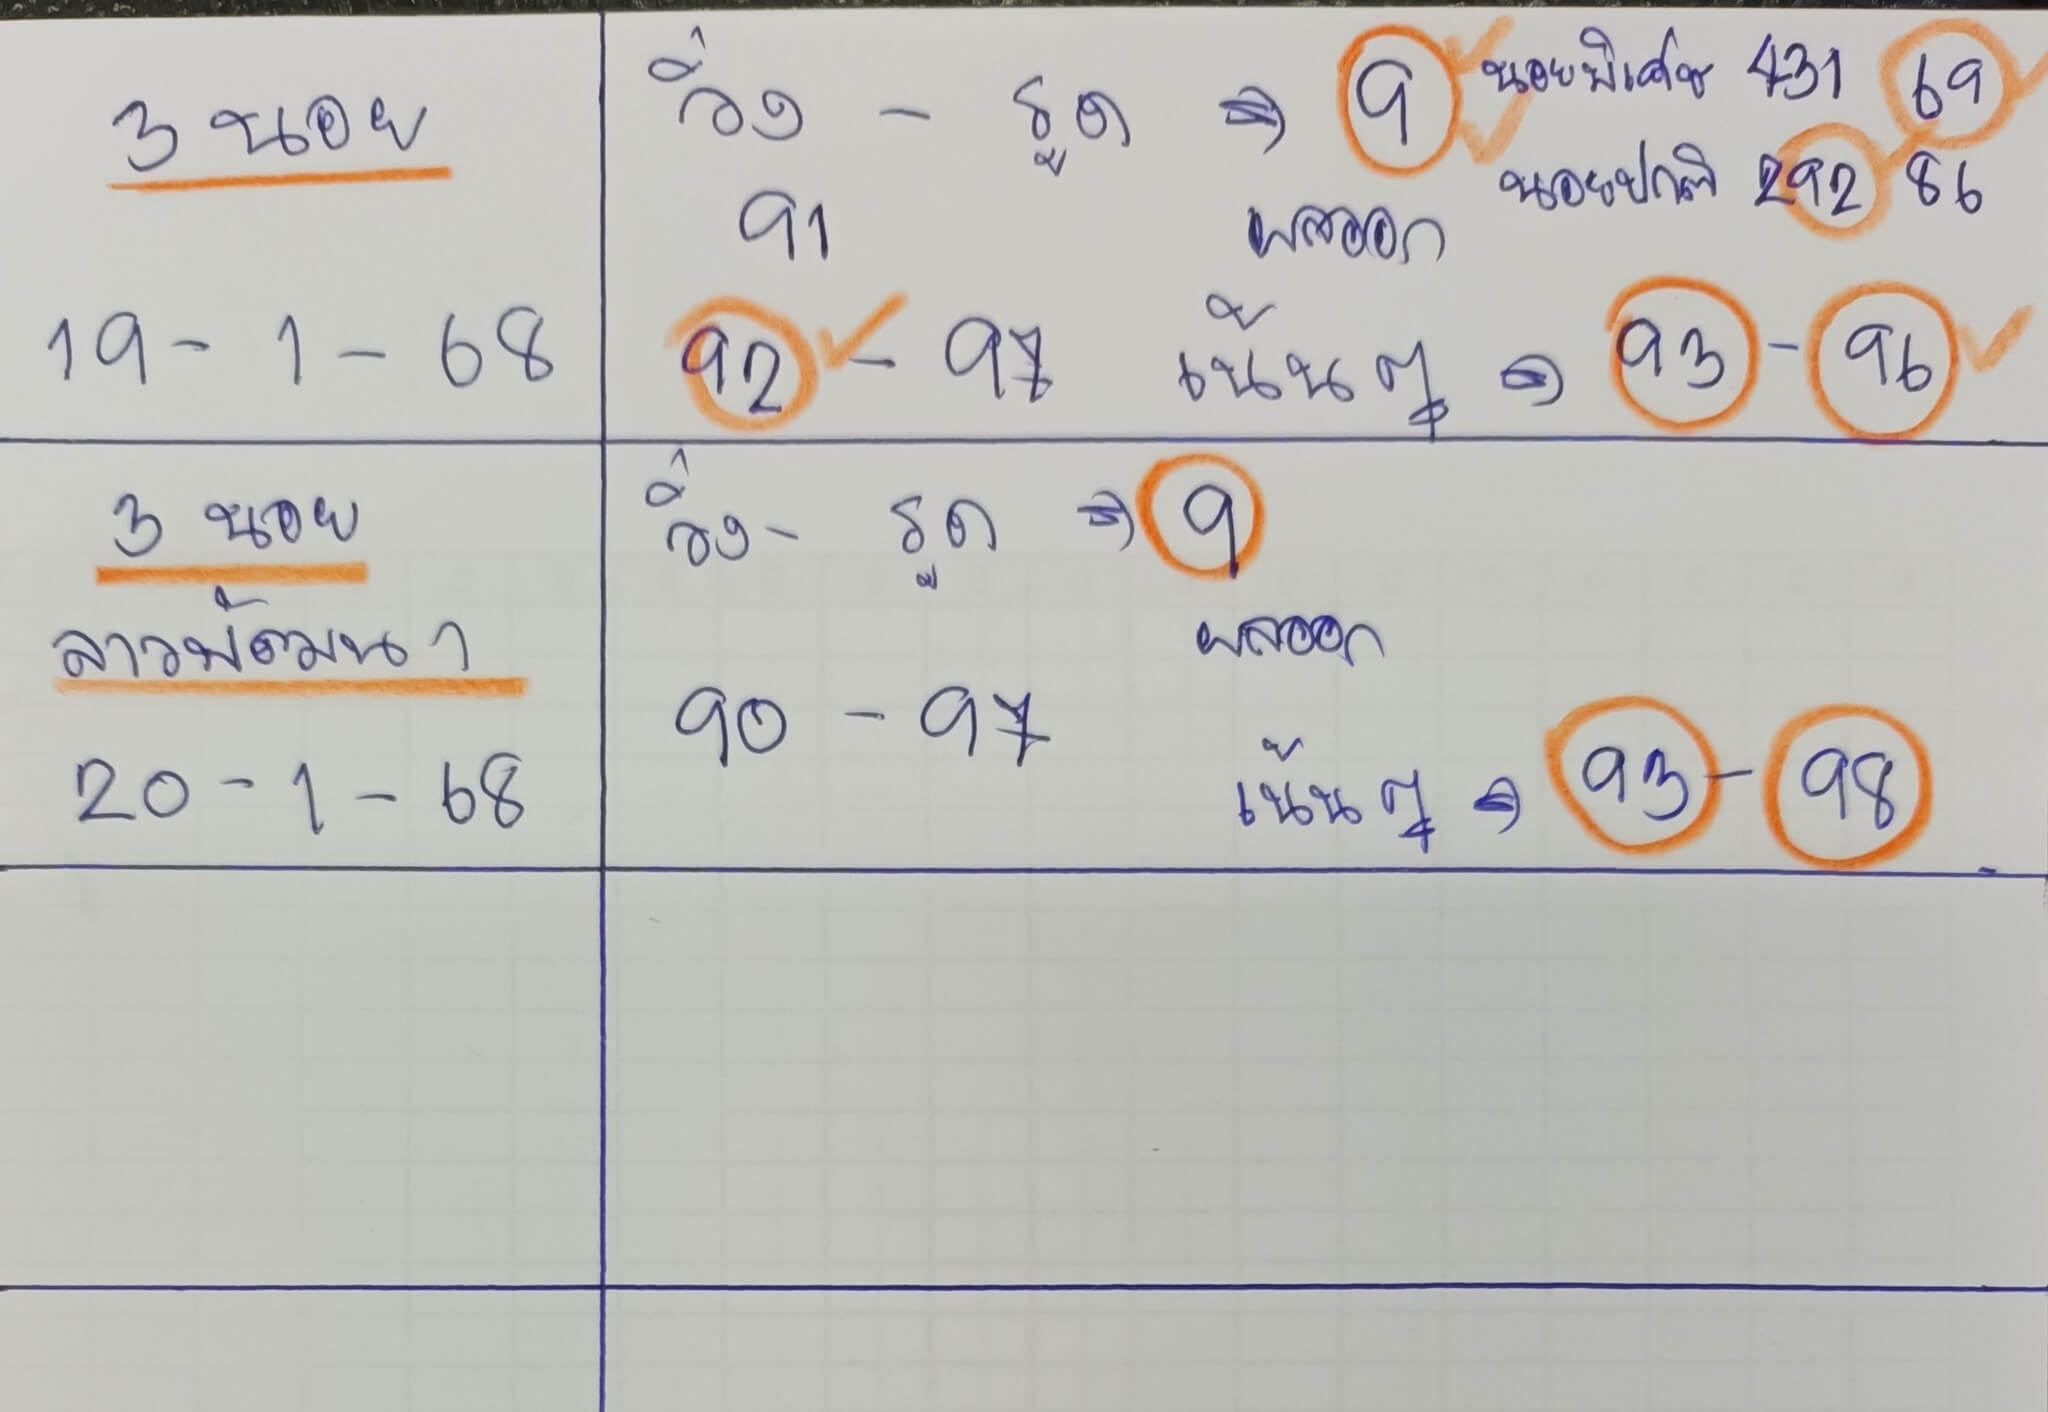 3 นอย
19 - 1 - 68
วิ่ง - รูด → 9 นอยพิเศษ 431 69
นอยปกติ 292 86
91 ผลออก
92 - 97 เน้นๆ → 93 - 96
3 นอย
ลาวพัฒนา
20 - 1 - 68
วิ่ง - รูด → 9
ผลออก
90 - 97
เน้นๆ → 93 - 98